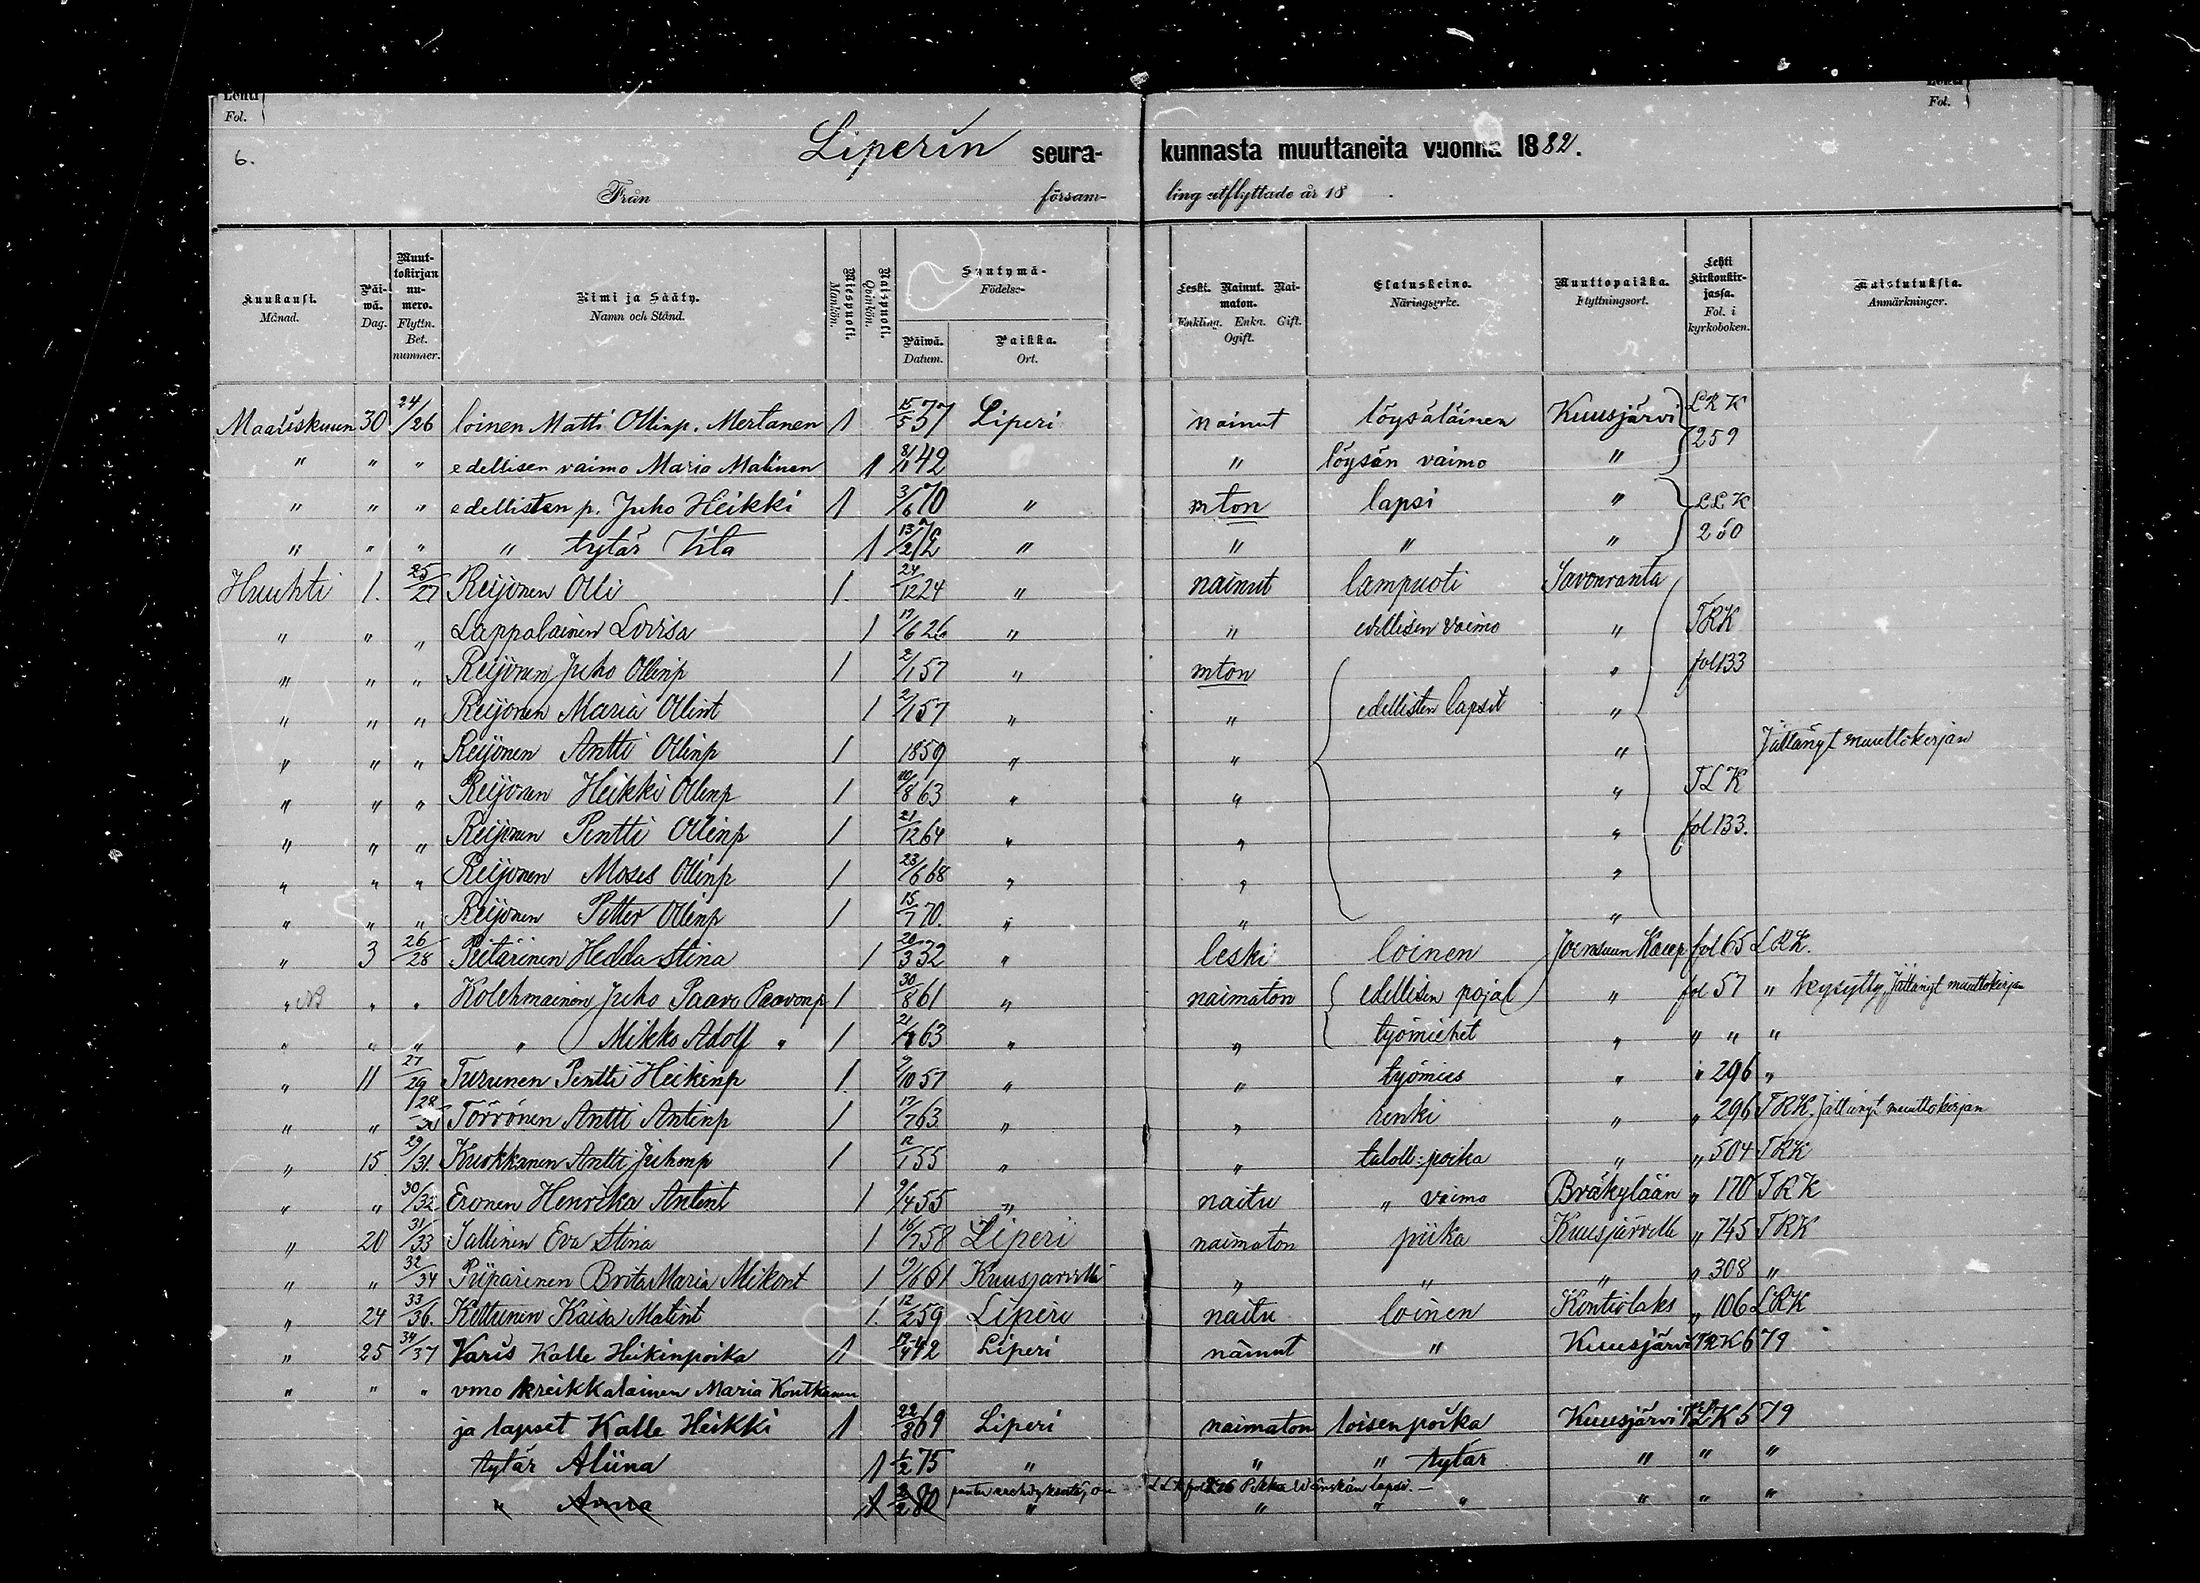 Lehti
Fol.
6.
Lehti
Fol.
Liperin seura- kunnasta muuttaneita vuonna 1882.
Från försam- ling utflyttade år 18 .
Kuukausi. Månad. Päi-wä. Dag. Muut-tokirjan nu-mero. Flyttn. Bet. nummer. Nimi ja Sääty. Namn och Stånd. Miespuoli. Mankön. Naispuoli. Qvinkön. Syntymä- Födelse- Päiwä. Datum. Paikka. Ort. Leski. Nainut. Nai-maton. Enkling. Enka. Gift. Ogift. Elatuskeino. Näringsyrke. Muuttopaikka. Flyttningsort. Lehti kirkonkir-jassa. Fol. i kyrkoboken. Muistutuksia. Anmärkningar.
Maaliskuun 30 24/26 loinen Matti Ollinp. Mertanen 1 15/5 37 Liperi nainut löysäläinen Kuusjärvi LRK 259
" " " edellisen vaimo Maria Malinen 1 42 " löysän vaimo "
" " " edellisten p. Juho Heikki 1 3/6 70 " mton lapsi " LLK 250
" " " " tytär Vita 1 13/2 " " " "
Huuhti 1. 25/27 Reijonen Olli 1. 24/12 24 " nainut lampuoti Savonranta
" " " Lappalainen Lovisa 1 17/6 26 " " edellisen vaimo " TRK
" " " Reijonen Juho Ollinp 1 2/1 57 " mton " fol 133
" " " Reijonen Maria Ollint 1 2/1 57 " " edellisten lapset "
" " " Reijonen Antti Ollinp 1 1859 " " " Jättänyt muuttokirjan
" " " Reijonen Heikki Ollinp 1 10/8 63 " " " TLK
" " " Reijonen Pentti Ollinp 1 21/12 64 " " " fol 133.
" " " Reijonen Moses Ollinp 1 23/6 68 " " "
" " " Reijonen Petter Ollinp 1 15/7 70. " " "
" 3 26/28 Pietarinen Hedda Stina 1 20/3 32 " leski loinen Joensuun Kaup fol 65 LRK.
" " " Kolehmainen Juho Paavo Paavonp 1 30/8 61 " naimaton edellisen pojat " fol 57 " kysytty, Jättänyt muuttokirjan
" " " " Mikko Adolf " 1 63 " " työmiehet " " " "
" 11 27/29 Turunen Pentti Heikinp 1. 9/10 57 " " työmies " " 296 "
" " 28/ Törrönen Antti Antinp 1 17/7 63. " " renki " " 296 TRK, Jättänyt muuttokirjan
" 15 29/31. Kuokkanen Antti Juhonp 1 12/1 55 " " taloll: poika " " 504 TRK
" " 30/32 Eronen Henrika Antint 1 9/4 55 " naitu " vaimo Bräkylään " 170 TRK
" 20 31/33 Tallinen Eva Stina 1 16/7 58 Liperi naimaton piika Kuusjärvelle " 745 TRK
" " 32/34 Piiparinen Brita Maria Mikont 1 9/6 61 " " " " 308 "
" 24 33/36. Kettunen Kaisa Matint 1. 12/2 59 Liperi naitu loinen Kontiolaks " 106 LRK
" 25 34/37 Varis Kalle Heikinpoika 1 42 Liperi nainut " Kuusjärvi TRK 679
" " " vmo kreikkalainen Maria Kontkanen
ja lapset Kalle Heikki 1 22/8 69 Liperi naimaton loisen poika Kuusjärvi TLK 579
tytär Aliina 1 1/2 75 " " " tytär " " "
" Anna 1 80 " " " " " " "